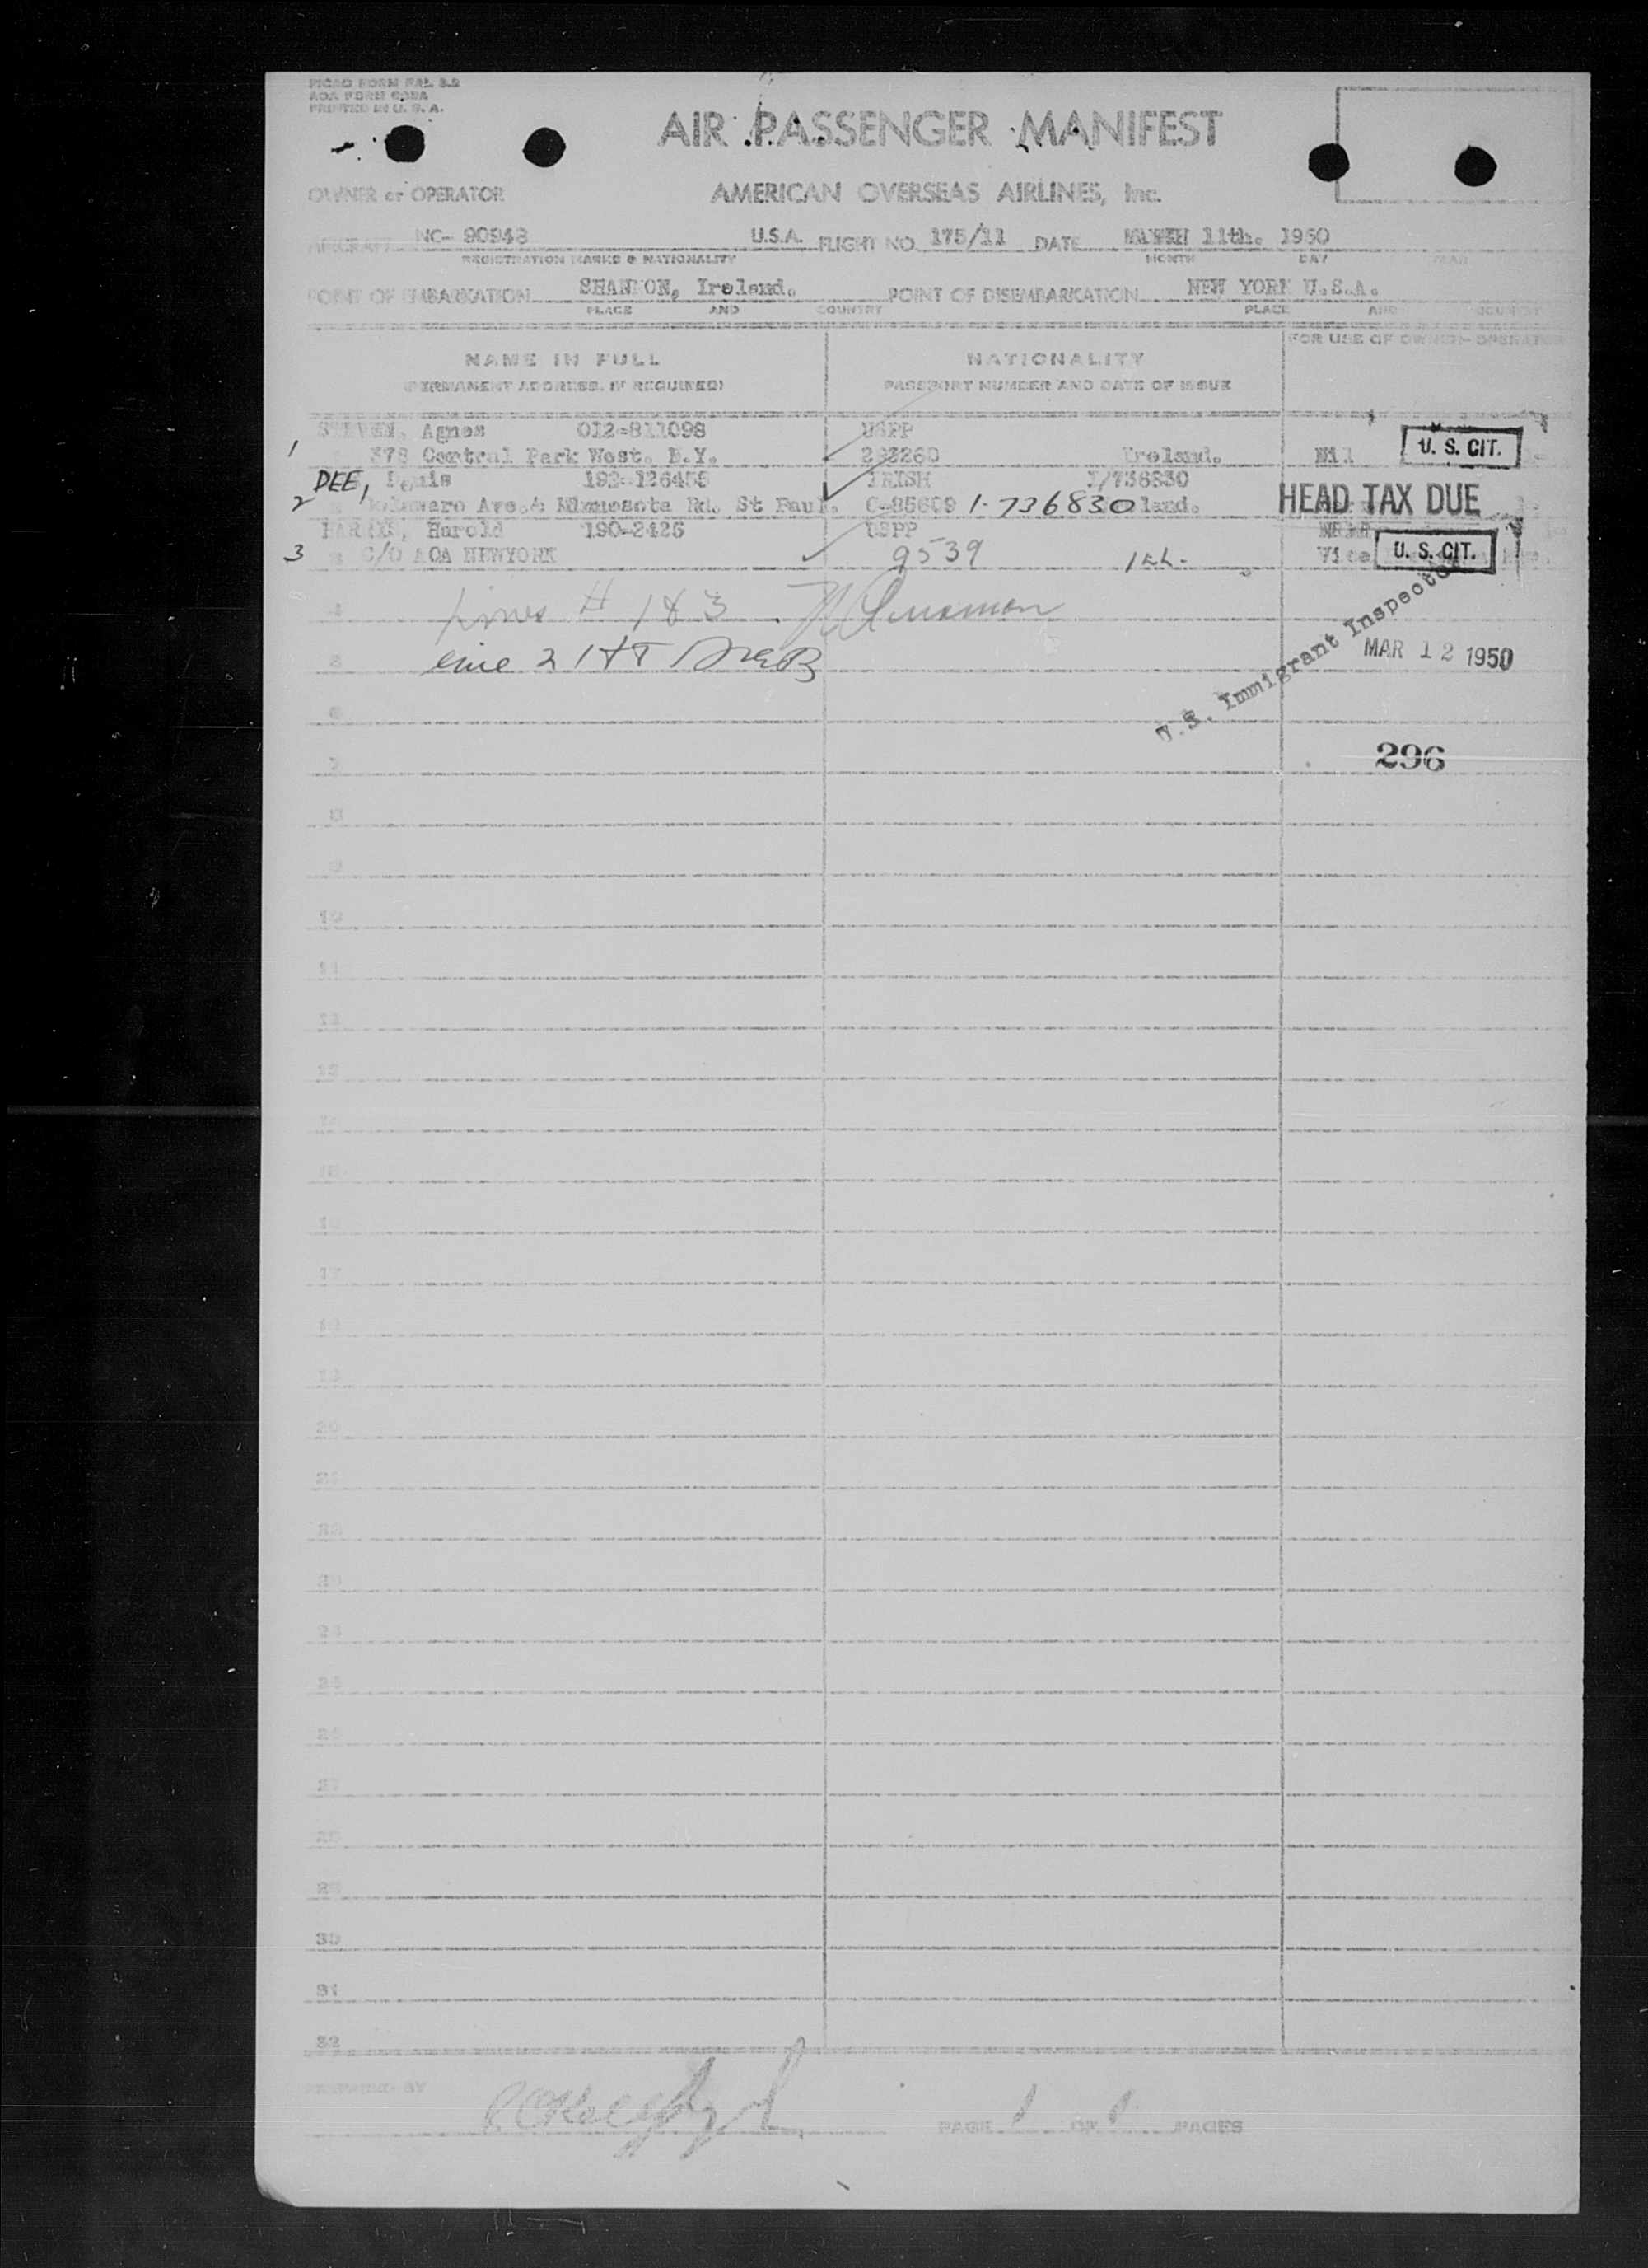 PICAO FORM FAL 3.2
AOA FORM
PRINTED IN U. S. A.
AIR PASSENGER MANIFEST
OWNER or OPERATOR AMERICAN OVERSEAS AIRLINES, Inc.
AIRCRAFT NC- 90948 U.S.A. FLIGHT NO. 175/11 DATE 11th. 1950
REGISTRATION MARKS & NATIONALITY MONTH DAY YEAR
POINT OF EMBARKATION SHANNON, Ireland. POINT OF DISEMBARKATION NEW YORK U.S.A.
PLACE AND COUNTRY PLACE AND COUNTRY
NAME IN FULL NATIONALITY FOR USE OF OWNER - OPERATOR
(PERMANENT ADDRESS, IF REQUIRED) PASSPORT NUMBER AND DATE OF ISSUE
Agnes 012-811098 USPP
1 378 Central Park West. N.Y. Ireland. Nil U. S. CIT.
DEE, 192-126455 IRISH I/736830
2 Ave. & Minnesota Rd. St Paul. C-85609 1-736830 land. HEAD TAX DUE
Harold 190-2426 USPP
3 C/O AOA NEWYORK 9539 U. S. CIT.
4 # 1 & 3
5 2 HT
U.S. Immigrant Inspector
MAR 12 1950
6
296
7
8
9
10
11
12
13
14
15
16
17
18
19
20
21
22
23
24
25
26
27
28
29
30
31
32
PREPARED BY
PAGE 1 OF 1 PAGES